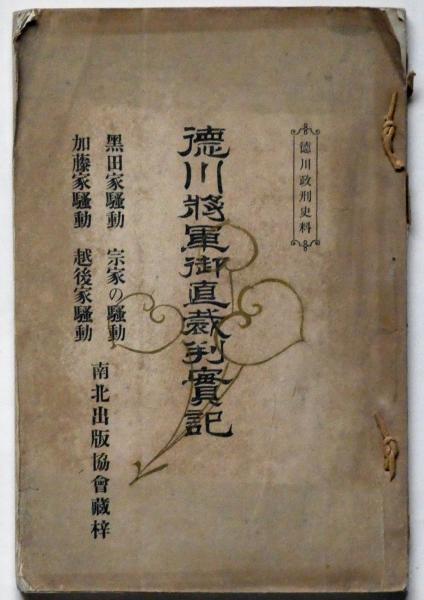 德川政刑史料
德川將軍御直裁判實記
黑田家騷動　宗家の騷動
加藤家騷動　越後家騷動
南北出版協會藏梓